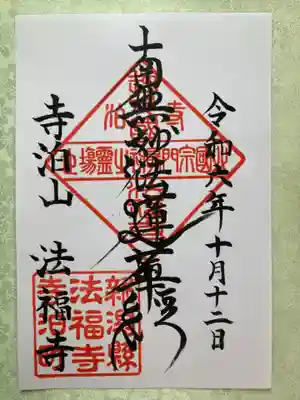 令和六年十月十二日
南無妙法蓮華経
寺泊山 法福寺
寺泊
新潟縣
法福寺
寺泊